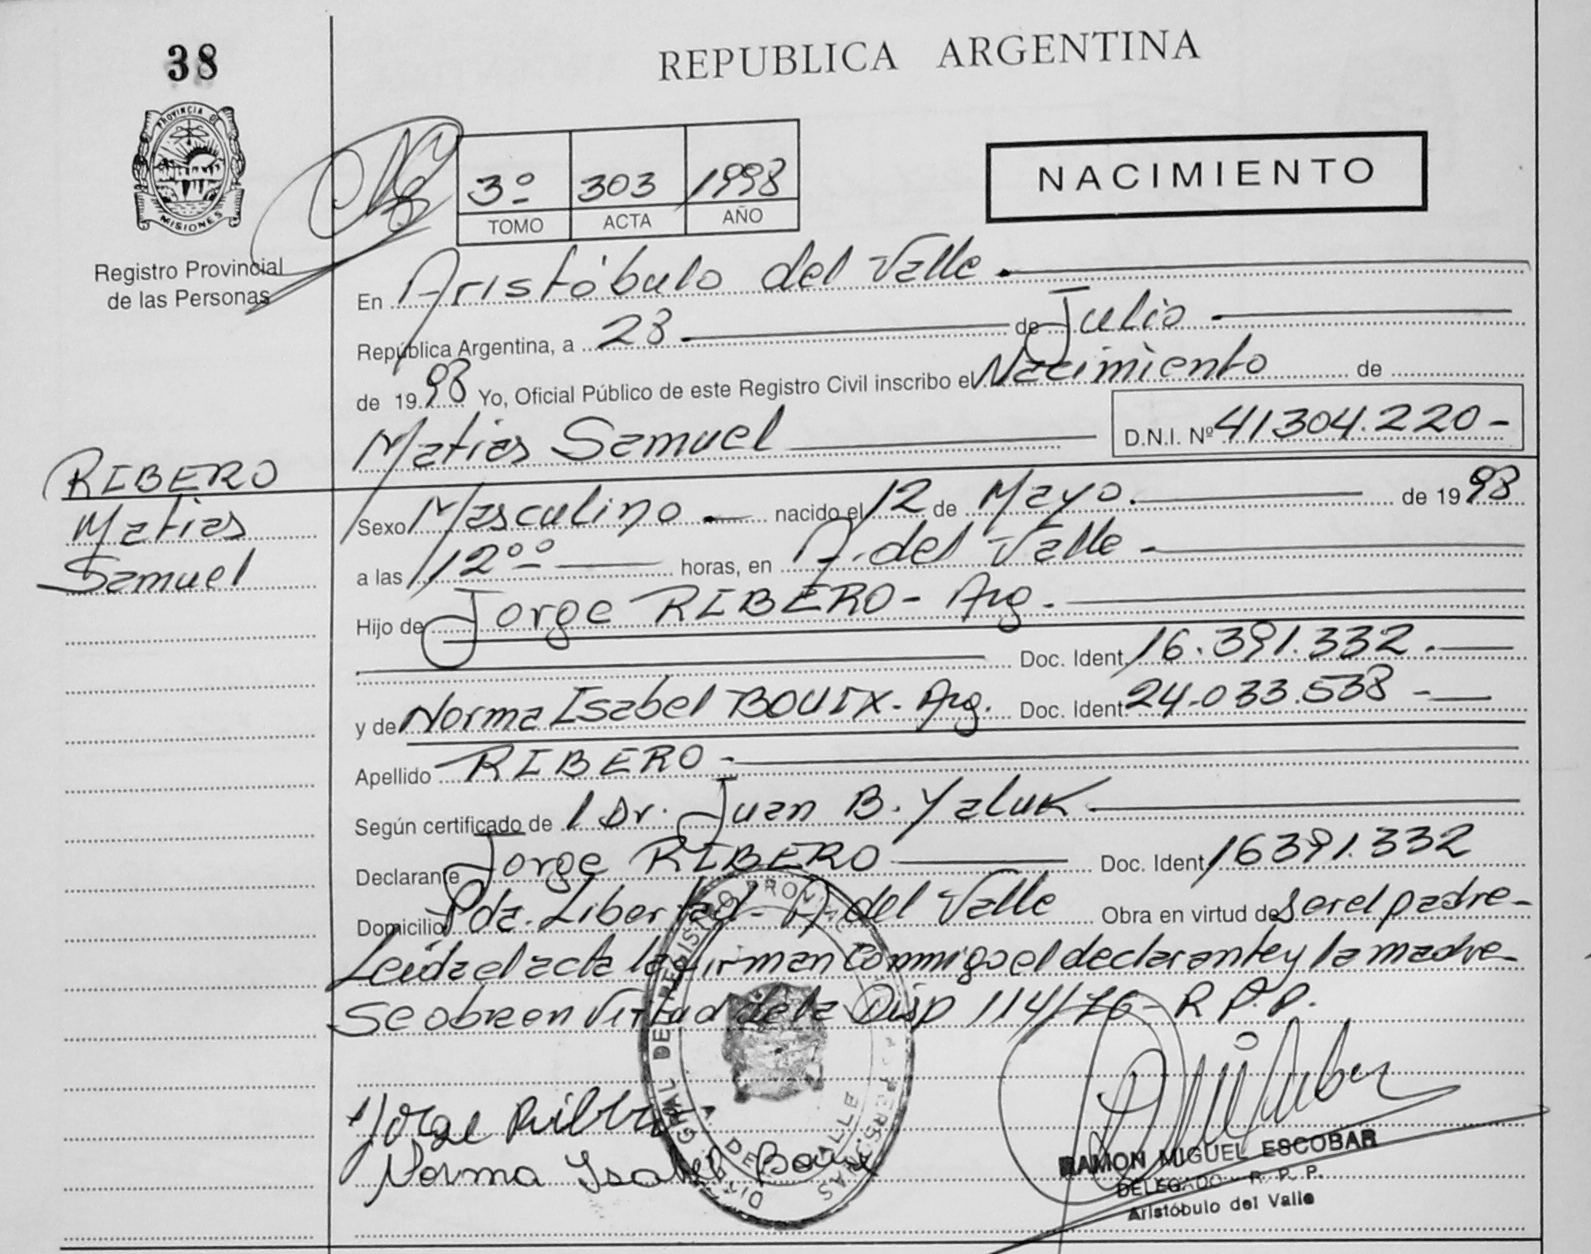 38
REPUBLICA ARGENTINA
PROVINCIA DE
MISIONES
Registro Provincial
de las Personas
3º 303 1998
TOMO ACTA AÑO
NACIMIENTO
En Aristóbulo del Valle.
República Argentina, a 28 de Julio
de 1998 Yo, Oficial Público de este Registro Civil inscribo el Nacimiento de
Matias Samuel D.N.I. Nº 41304.220-
RIBERO
Matias
Samuel
Sexo Masculino nacido el 12 de Mayo. de 1998
a las 12ºº horas, en A. del Valle -
Hijo de Jorge RIBERO - Arg.
Doc. Ident. 16.391.332.
y de Norma Isabel BOUIX - Arg. Doc. Ident. 24.033.538 -
Apellido RIBERO -
Según certificado de l Dr. Juan B. Yaluk
Declarante Jorge RIBERO Doc. Ident. 16391.332
Domicilio Pda. Libertad - A del Valle Obra en virtud de ser el padre-
Leída el acta la firman conmigo el declarante y la madre
Se obra en virtud de la Disp 114/76 - R.P.P.
Jorge Ribero
Norma Isabel Bouix
DEL VALLE
RAMON MIGUEL ESCOBAR
DELEGADO - R. P. P.
Aristóbulo del Valle